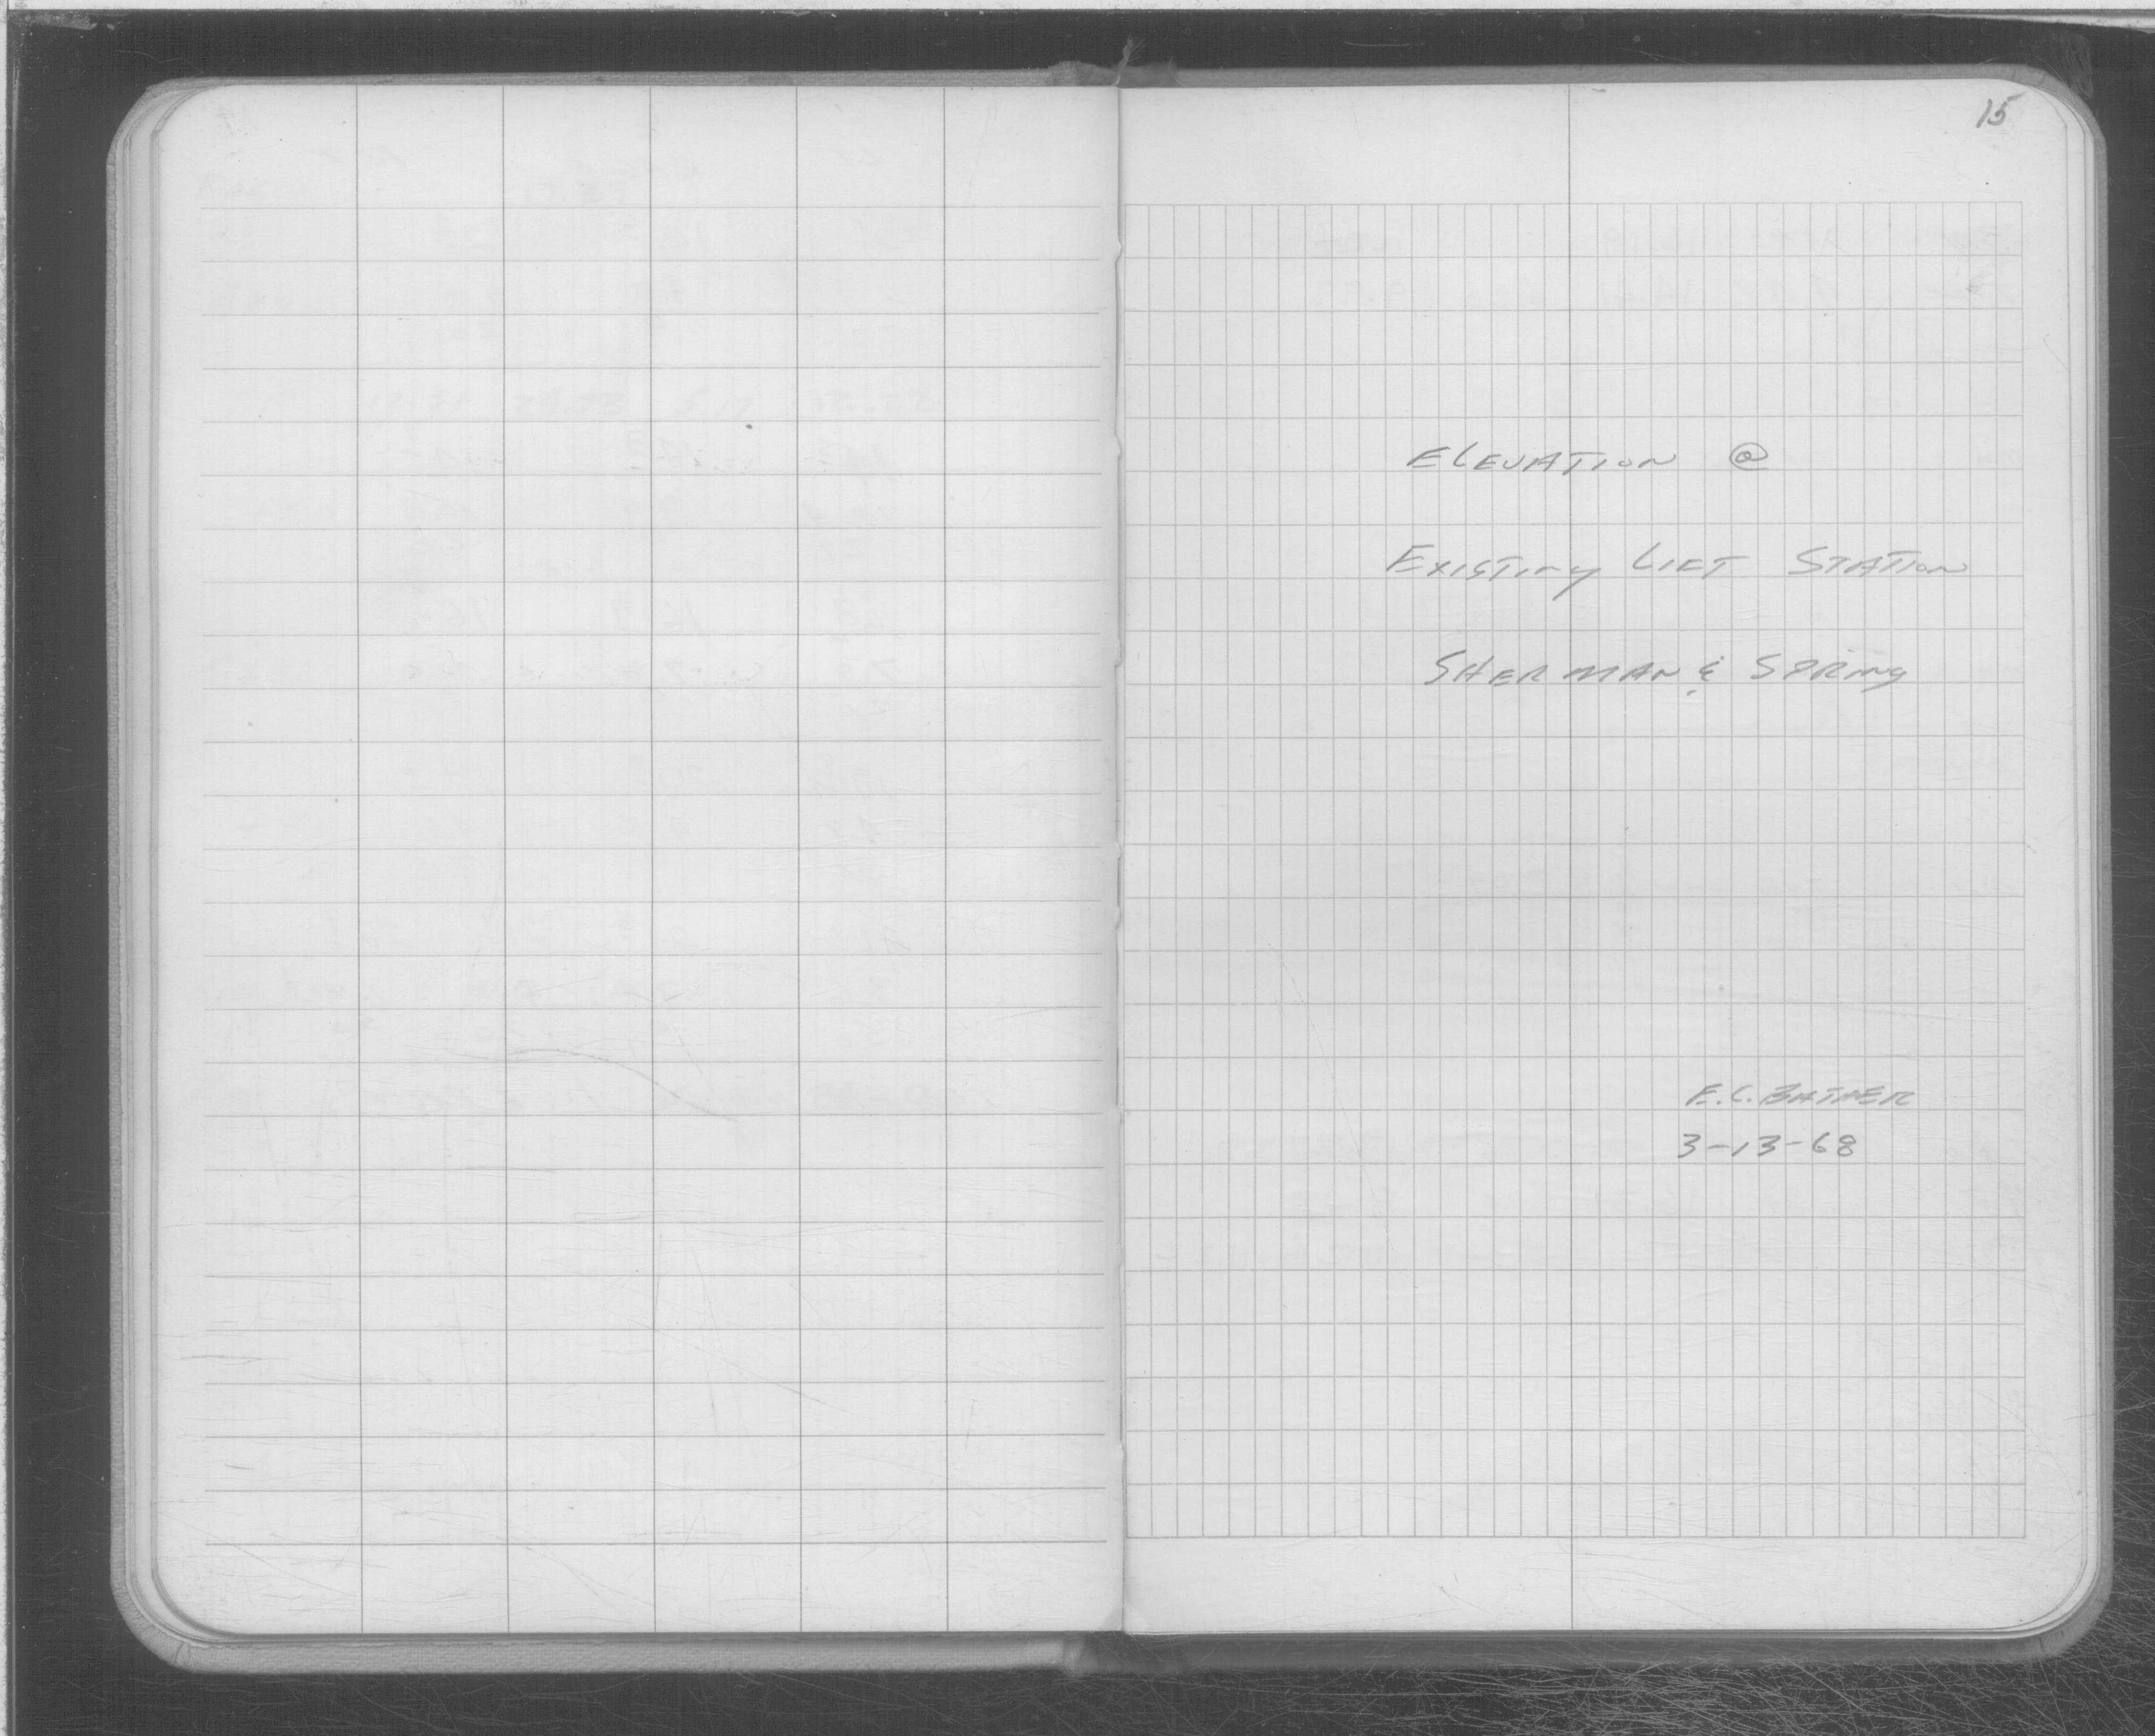 15
ELEVATION @
EXISTING LIFT STATION
SHERMAN & SPRING
3-13-68